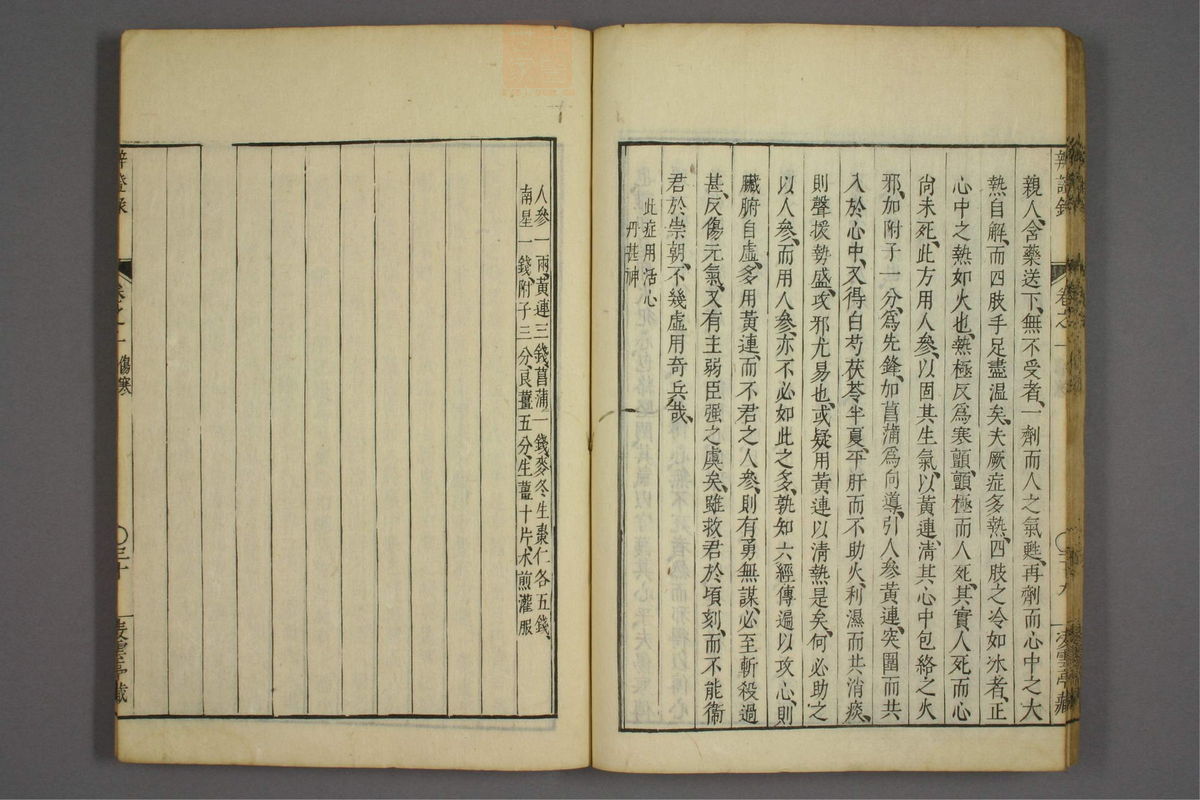 辨證錄 卷之一 凌雲亭藏
親人、含藥送下、無不受者、一劑而人之氣甦、再劑而心中之大
熱自解、而四肢手足盡溫矣、夫厥症多熱、四肢之冷如冰者、正
心中之熱如火也、熱極反爲寒顫、顫極而人死、其實、人死而心
尚未死、此方用人參、以固其生氣、以黃連、清其心中包絡之火
邪、加附子一分、爲先鋒、加菖蒲爲向導、引人參黃連、突圍而共
入於心中、又得白芍茯苓半夏、平肝而不助火、利濕而共消痰、
則聲援勢盛、攻邪尤易也、或疑用黃連以清熱是矣、何必助之
以人參、而用人參、亦不必如此之多、孰知六經傳遍以攻心、則
臟腑自虛、多用黃連、而不君之人參、則有勇無謀、必至斬殺過
甚、反傷元氣、又有主弱臣强之虞矣、雖救君於頃刻、而不能衞
君於崇朝、不幾虛用奇兵哉、
此症用活心
丹甚神
人參一兩、黃連三錢、菖蒲一錢、麥冬生棗仁各五錢、
南星一錢、附子三分、良薑五分、生薑十片、水煎灌服
辨證錄 卷之一 傷寒 三十 凌雲亭藏